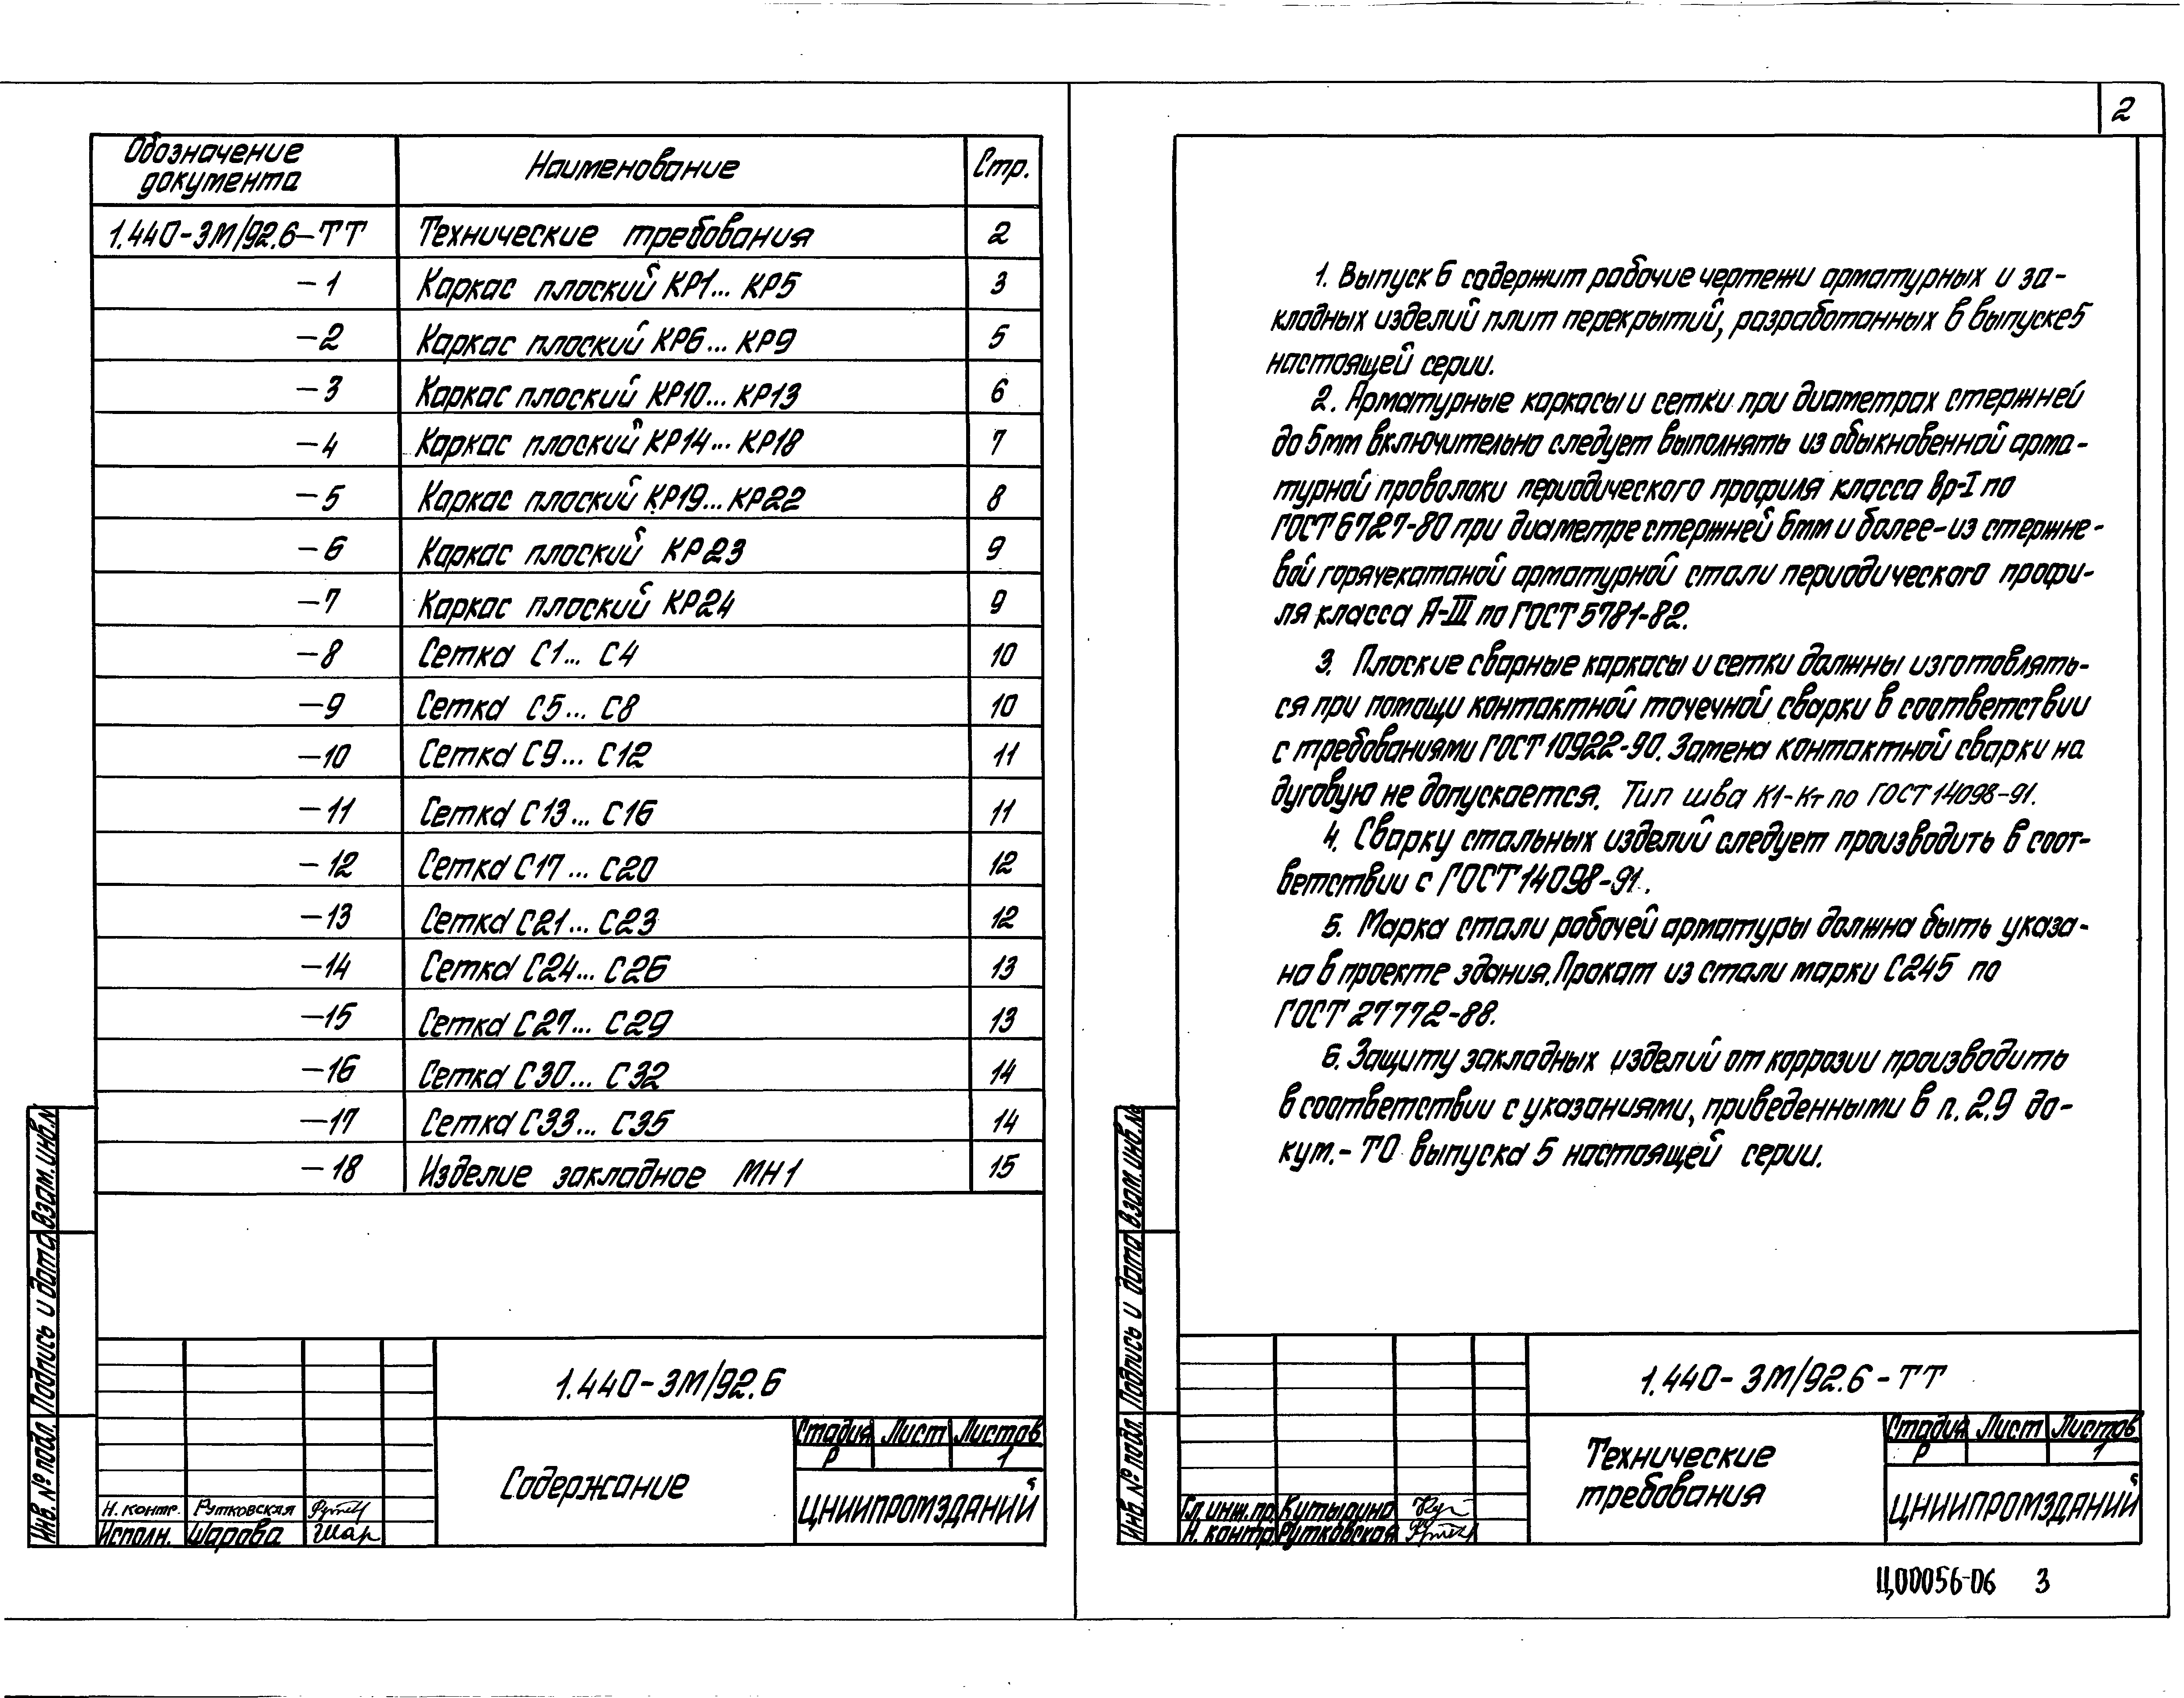 Обозначение документа Наименование Стр.
1.440-3М/92.6-ТТ Технические требования 2
-1 Каркас плоский КР1... КР5 3
-2 Каркас плоский КР6... КР9 5
-3 Каркас плоский КР10... КР13 6
-4 Каркас плоский КР14... КР18 7
-5 Каркас плоский КР19... КР22 8
-6 Каркас плоский КР23 9
-7 Каркас плоский КР24 9
-8 Сетка С1... С4 10
-9 Сетка С5... С8 10
-10 Сетка С9... С12 11
-11 Сетка С13... С16 11
-12 Сетка С17... С20 12
-13 Сетка С21... С23 12
-14 Сетка С24... С26 13
-15 Сетка С27... С29 13
-16 Сетка С30... С32 14
-17 Сетка С33... С35 14
-18 Изделие закладное МН1 15
Инв. № подл. Подпись и дата Взам. инв. №
1.440-3М/92.6
Содержание
Стадия Лист Листов
Р 1
ЦНИИПРОМЗДАНИЙ
Н. контр. Рутковская
Исполн. Шарова
2
1. Выпуск 6 содержит рабочие чертежи арматурных и за-
кладных изделий плит перекрытий, разработанных в выпуске 5
настоящей серии.
2. Арматурные каркасы и сетки при диаметрах стержней
до 5мм включительно следует выполнять из обыкновенной арма-
турной проволоки периодического профиля класса Вр-I по
ГОСТ 6727-80 при диаметре стержней 6мм и более-из стержне-
вой горячекатаной арматурной стали периодического профи-
ля класса А-III по ГОСТ 5781-82.
3. Плоские сварные каркасы и сетки должны изготовлять-
ся при помощи контактной точечной сварки в соответствии
с требованиями ГОСТ 10922-90. Замена контактной сварки на
дуговую не допускается. Тип шва К1-Кт по ГОСТ 14098-91.
4. Сварку стальных изделий следует производить в соот-
ветствии с ГОСТ 14098-91.
5. Марка стали рабочей арматуры должна быть указа-
на в проекте здания. Прокат из стали марки С245 по
ГОСТ 27772-88.
6. Защиту закладных изделий от коррозии производить
в соответствии с указаниями, приведенными в п. 2.9 до-
кум.- ТО выпуска 5 настоящей серии.
Инв. № подл. Подпись и дата Взам. инв. №
1.440-3М/92.6-ТТ
Технические
требования
Стадия Лист Листов
Р 1
ЦНИИПРОМЗДАНИЙ
Гл. инж. пр. Кутырина
Н. контр. Рутковская
Ц00056-06 3